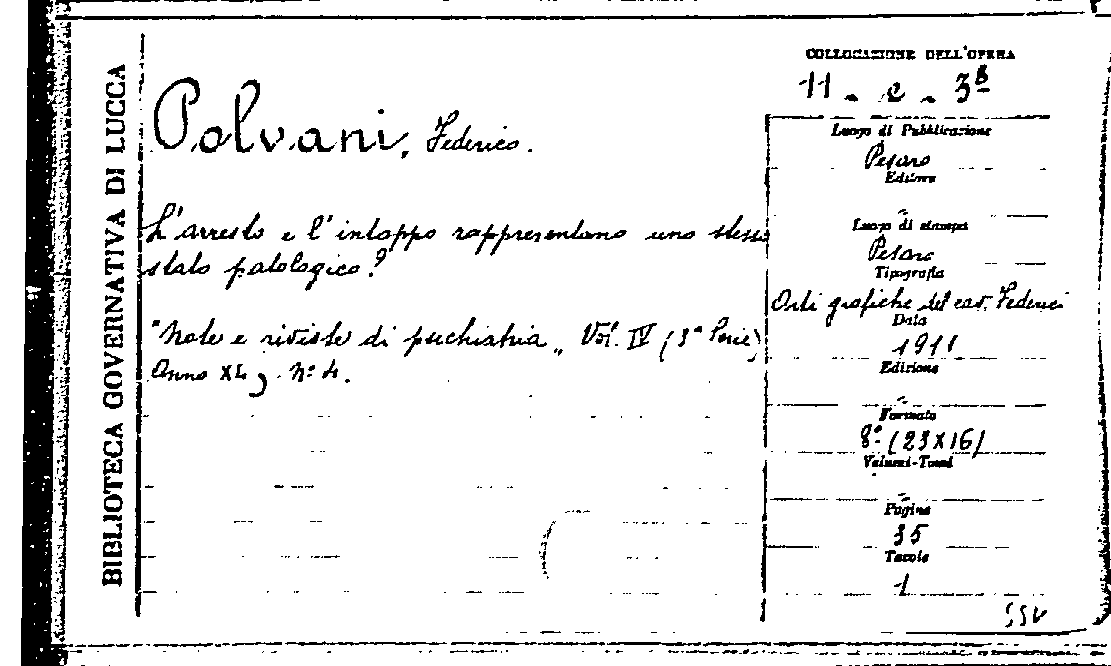 BIBLIOTECA GOVERNATIVA DI LUCCA
Polvani, Federico.
L'arresto e l'intoppo rappresentano uno stesso
stato patologico?
"Note e riviste di psichiatria„ Vol. IV (3ª Serie)
Anno XL, Nº 4.
COLLOCAZIONE DELL'OPERA
11 - e - 3
Luogo di Pubblicazione
Pesaro
Editore
-
Luogo di stampa
Pesaro
Tipografia
Arti grafiche del cav. Federici
Data
1911
Edizione
-
Formato
8º (23X16)
Volumi-Tomi
-
Pagine
35
Tavole
1